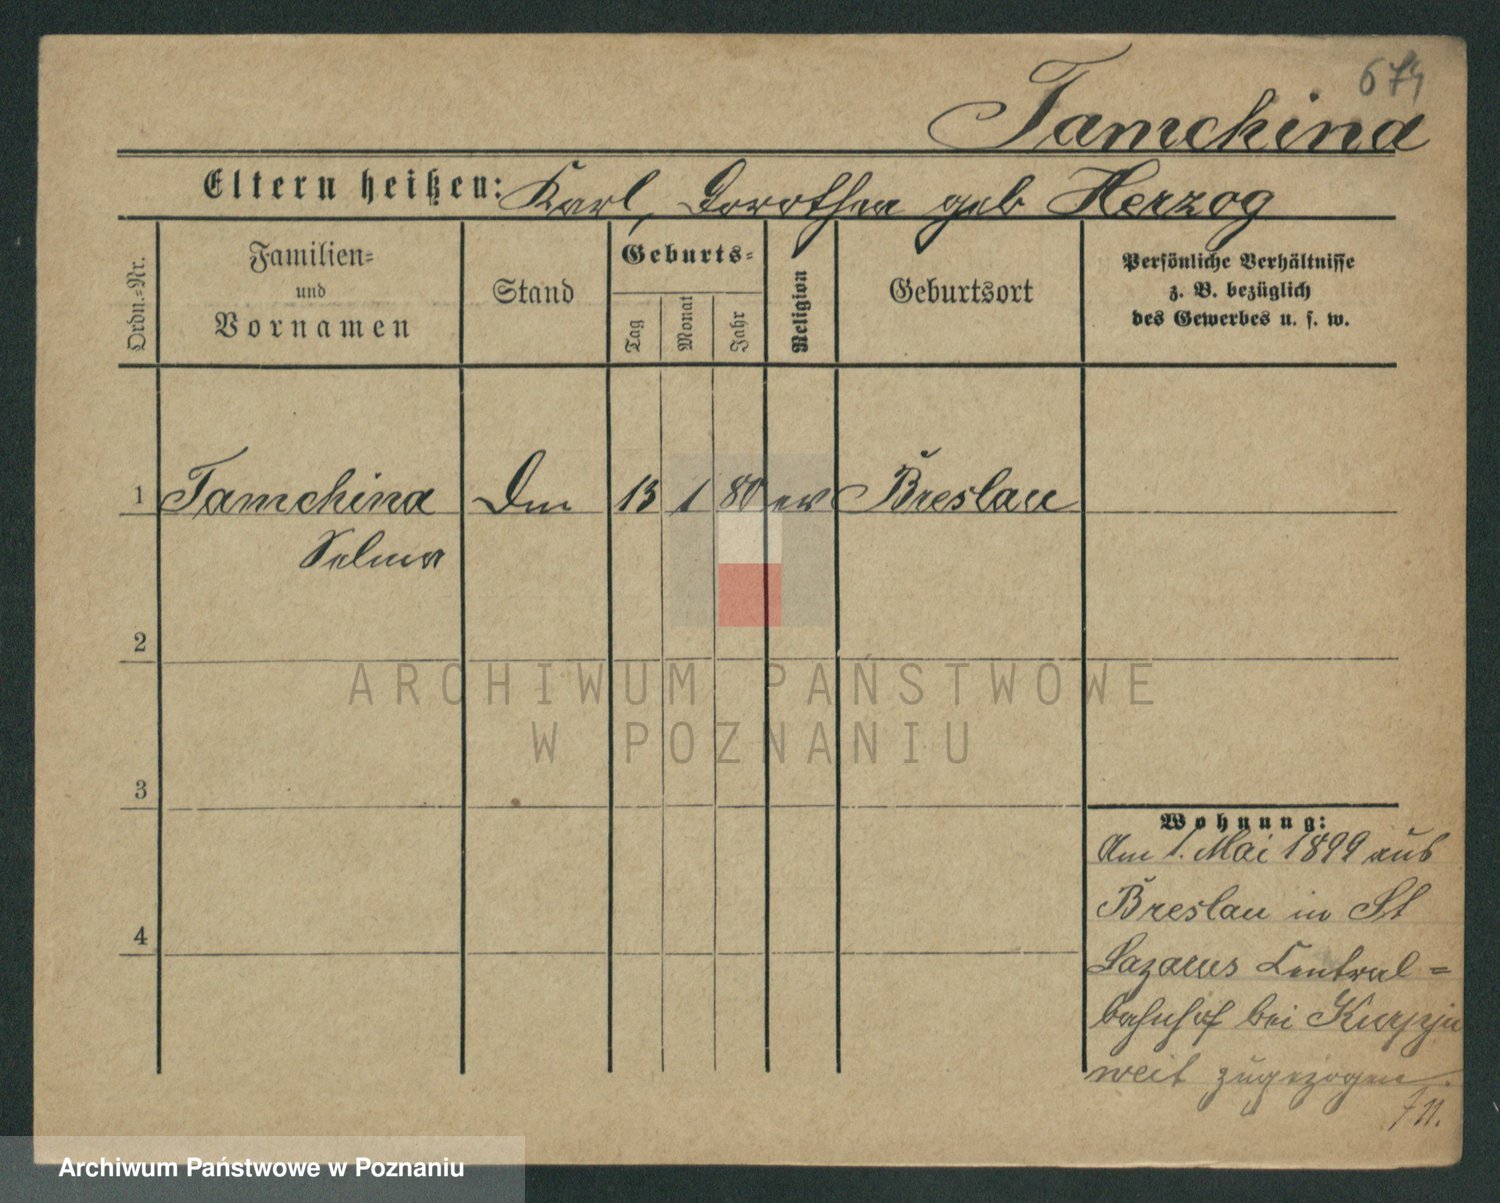 674
Tamchina
Eltern heißen: Karl, Dorothea geb Herzog
Ordn.=Nr.
Familien=
und
Vornamen
Stand
Geburts=
Tag
Monat
Jahr
Religion
Geburtsort
Persönliche Verhältnisse
z. B. bezüglich
des Gewerbes u. s. w.
1 Tamchina 13 1 80 ev Breslau
Selma
2
3
4
Wohnung:
Am 1. Mai 1899 aus
Breslau in St
Lazarus Central=
bahnhof bei
weit zugezogen.
ARCHIWUM PAŃSTWOWE
W POZNANIU
Archiwum Państwowe w Poznaniu